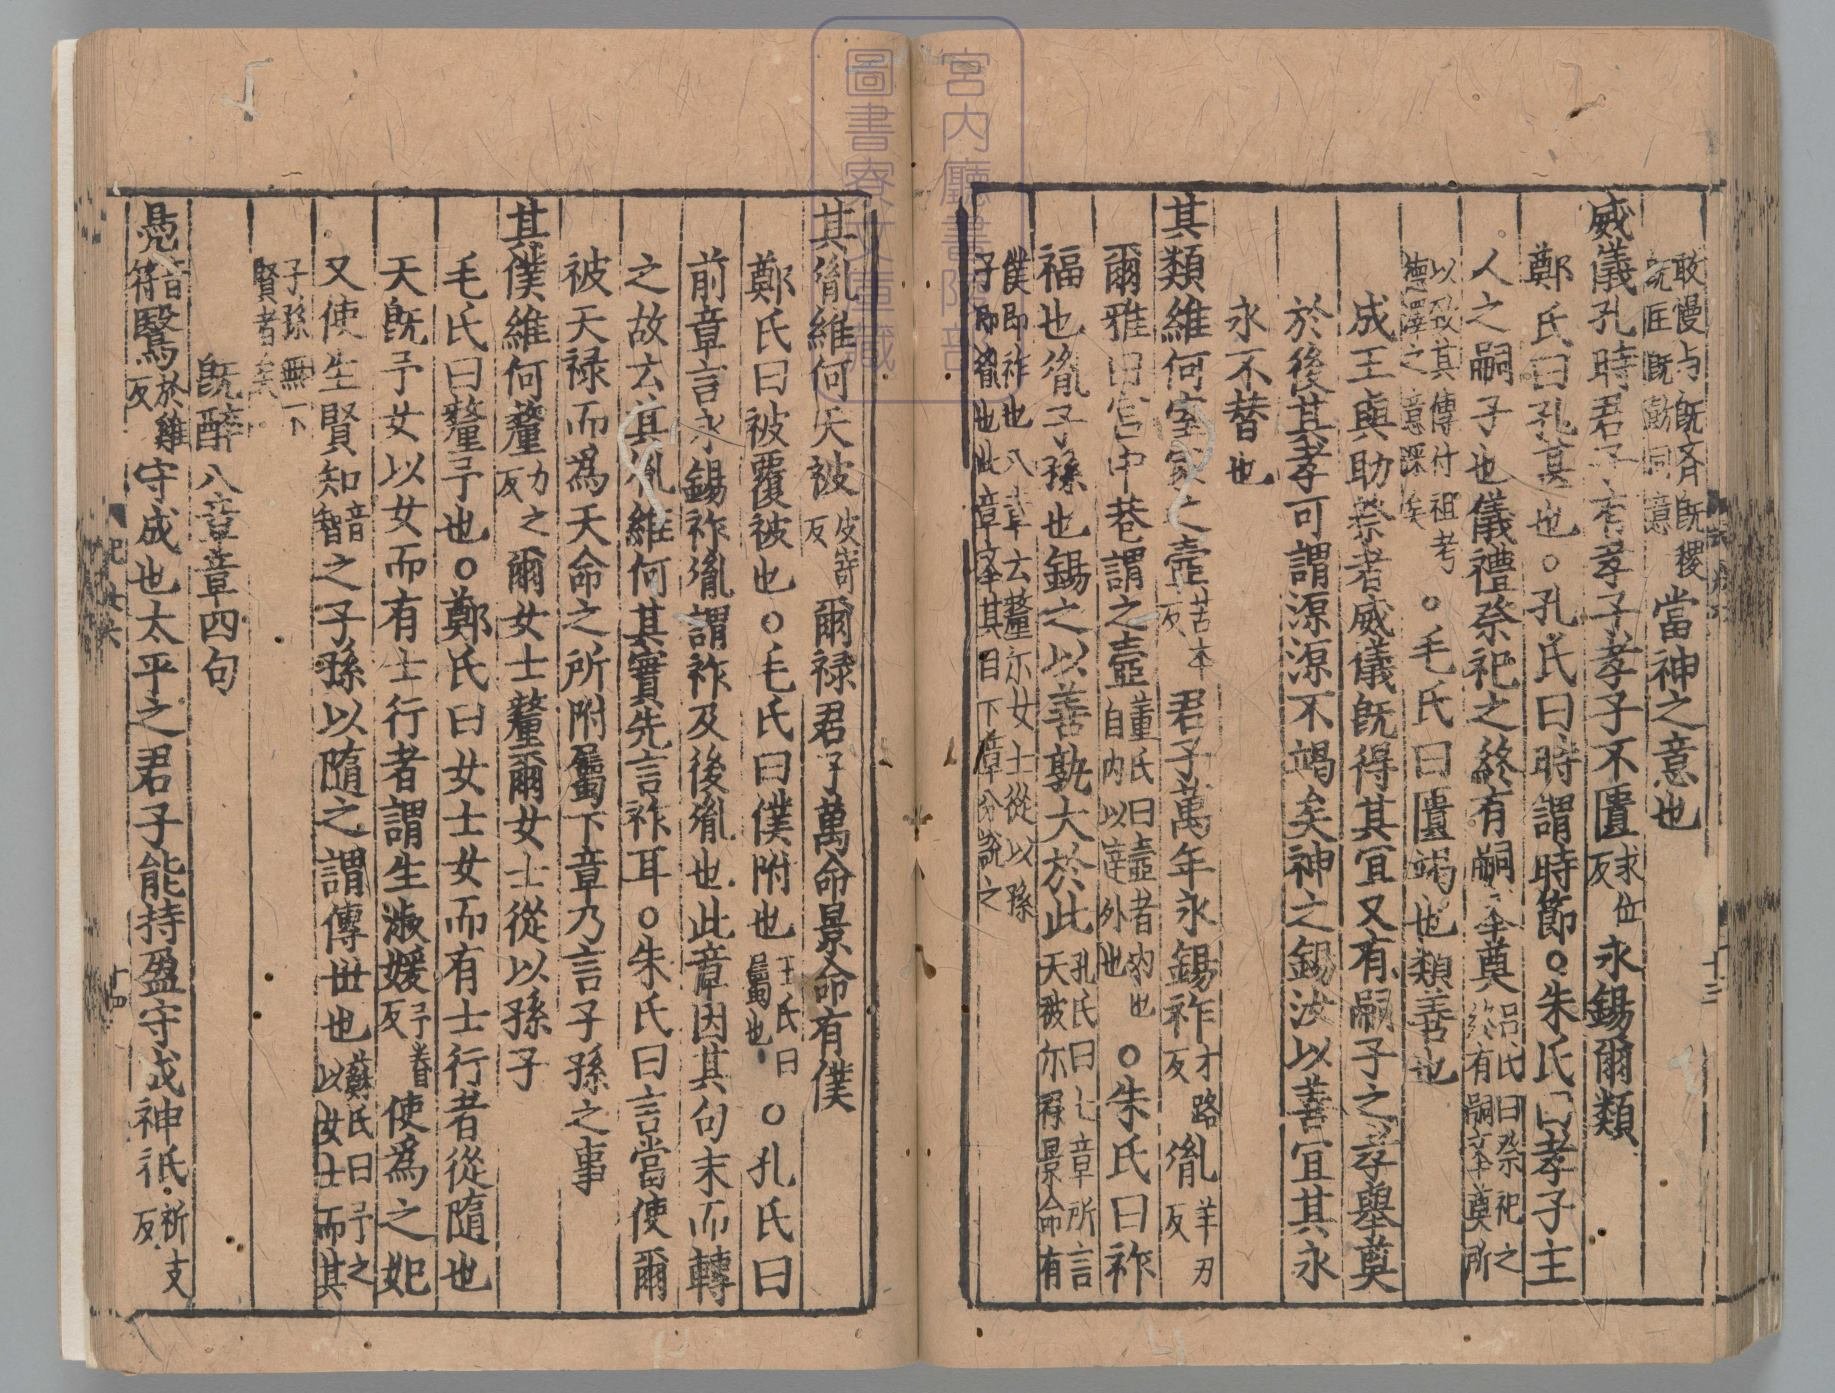 敢慢与既齊既稷
既匡既勑同意
當神之意也
威儀孔時君子有孝子孝子不匱求位反永錫爾類
鄭氏曰孔甚也○孔氏曰時謂時節○朱氏曰孝子主
人之嗣子也儀禮祭祀之終有嗣舉奠呂氏曰祭祀之終有嗣子舉奠所
以致其傳付祖考
德澤之意深矣
○毛氏曰匱竭也類善也
成王與助祭者威儀既得其宜又有嗣子之孝舉奠
於後其孝可謂源源不竭矣神之錫汝以善宜其永
永不替也
其類維何室家之壼苦本反君子萬年永錫祚才路反胤羊刃反
爾雅曰宮中巷謂之壼董氏曰壼者內也自內以達外也○朱氏曰祚
福也胤子孫也錫之以善孰大於此孔氏曰七章所言天被尓祿景命有
僕即祚也八章云釐尓女士從以孫
子即胤也此章舉其目下章分說之
其胤維何天被皮寄反爾祿君子萬年景命有僕
鄭氏曰被覆被也○毛氏曰僕附也王氏曰屬也○孔氏曰
前章言永錫祚胤謂祚及後胤也此章因其句末而轉
之故云其胤維何其實先言祚耳○朱氏曰言當使爾
被天祿而爲天命之所附屬下章乃言子孫之事
其僕維何釐力之反爾女士釐爾女士從以孫子
毛氏曰釐予也○鄭氏曰女士女而有士行者從隨也
天既予女以女而有士行者謂生淑媛于眷反使爲之妃
又使生賢知音智之子孫以隨之謂傳世也蘇氏曰予之以女士而其
子孫無不
賢者矣
既醉八章章四句
鳧音符鷖於雞反守成也太平之君子能持盈守成神祇祈支反
宮內廳書陵部
圖書寮文庫藏